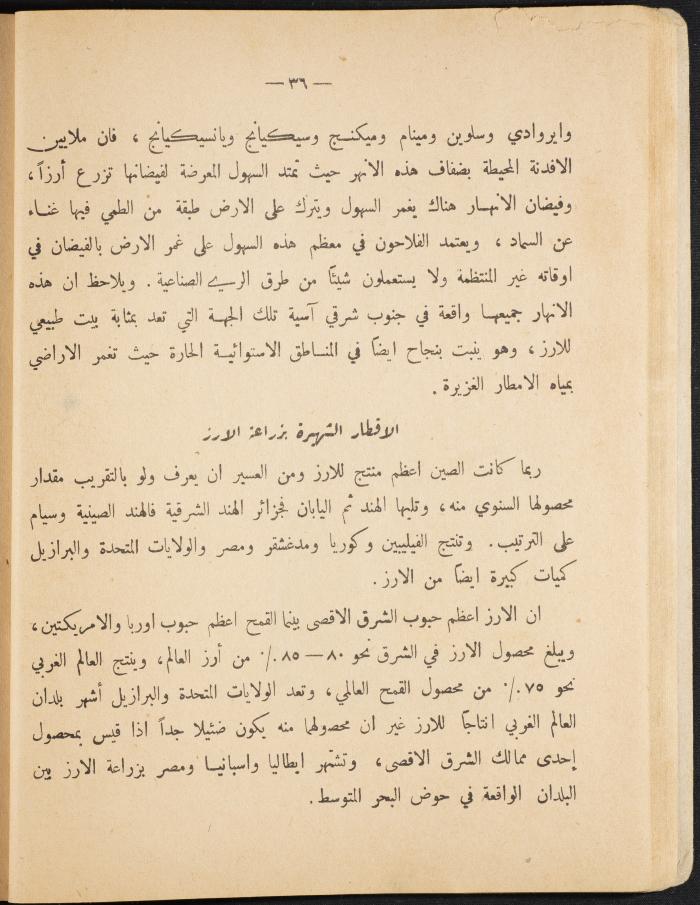 — ٣٦ —
وايروادي وسلوين ومينام وميكنج وسيكيانج ويانسيكيانج ، فان ملايين
الافدنة المحيطة بضفاف هذه الانهر حيث تمتد السهول المعرضة لفيضانها تزرع أرزاً ،
وفيضان الانهار هناك يغمر السهول ويترك على الارض طبقة من الطمي فيها غناء
عن السماد ، ويعتمد الفلاحون في معظم هذه السهول على غمر الارض بالفيضان في
اوقاته غير المنتظمة ولا يستعملون شيئاً من طرق الري الصناعية . ويلاحظ ان هذه
الانهار جميعها واقعة في جنوب شرقي آسية تلك الجهة التي تعد بمثابة بيت طبيعي
للارز ، وهو ينبت بنجاح ايضاً في المناطق الاستوائية الحارة حيث تغمر الاراضي
بمياه الامطار الغزيرة .
الاقطار الشهيرة بزراعة الارز
ربما كانت الصين اعظم منتج للارز ومن العسير ان يعرف ولو بالتقريب مقدار
محصولها السنوي منه ، وتليها الهند ثم اليابان فجزائر الهند الشرقية فالهند الصينية وسيام
على الترتيب . وتنتج الفيليبين وكوريا ومدغشقر ومصر والولايات المتحدة والبرازيل
كميات كبيرة ايضاً من الارز .
ان الارز اعظم حبوب الشرق الاقصى بينما القمح اعظم حبوب اوربا والامريكتين ،
ويبلغ محصول الارز في الشرق نحو ٨٠ — ٨٥ ٪ من أرز العالم ، وينتج العالم الغربي
نحو ٧٥ ٪ من محصول القمح العالمي ، وتعد الولايات المتحدة والبرازيل أشهر بلدان
العالم الغربي انتاجاً للارز غير ان محصولهما منه يكون ضئيلا جداً اذا قيس بمحصول
إحدى ممالك الشرق الاقصى ، وتشتهر ايطاليا واسبانيا ومصر بزراعة الارز بين
البلدان الواقعة في حوض البحر المتوسط .